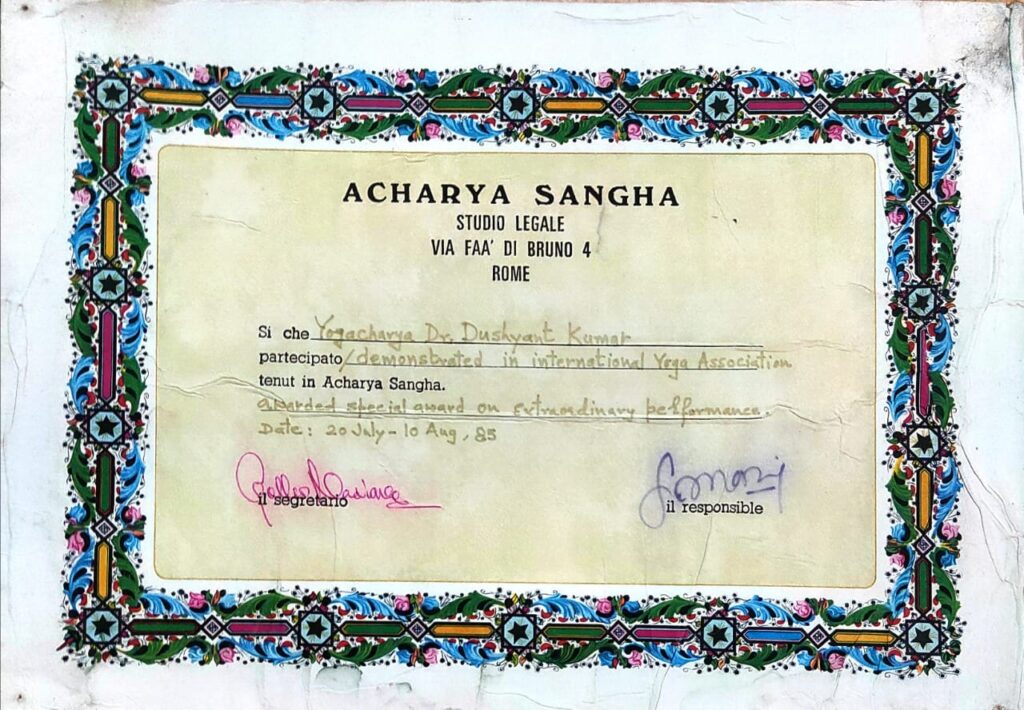 ACHARYA SANGHA
STUDIO LEGALE
VIA FAA' DI BRUNO 4
ROME
Si che Yogacharya Dr. Dushyant Kumar
partecipato/demonstrated in international Yoga Association
tenut in Acharya Sangha.
awarded special award on extraordinary performance.
Date: 20 July - 10 Aug, 85
il segretario
il responsible